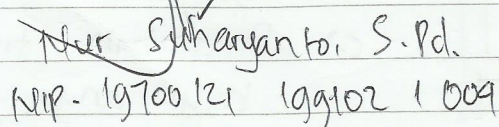 Nur Suharyanto, S.Pd.
NIP. 19700121 199102 1 009